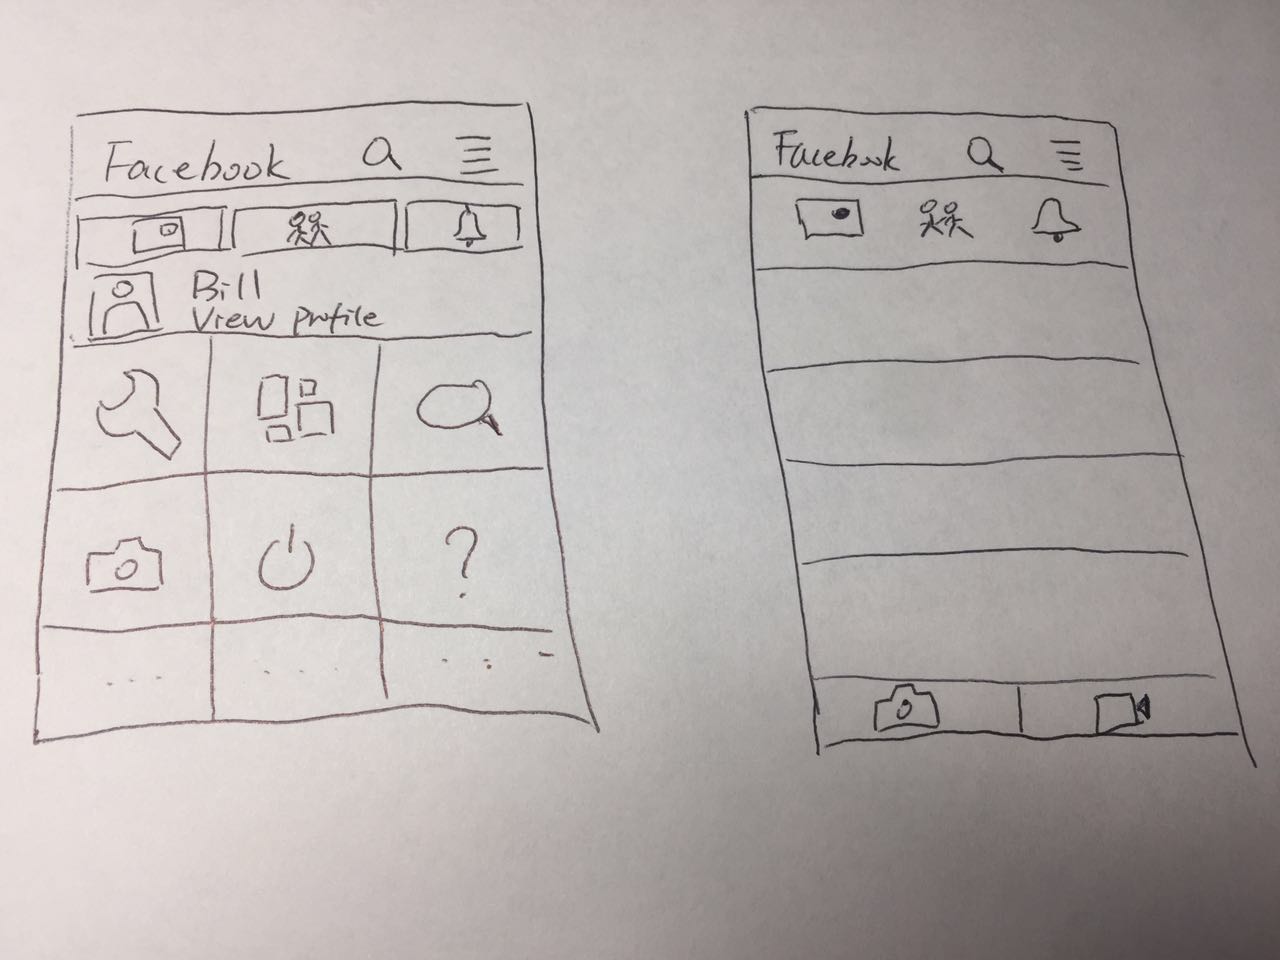 Facebook
Bill
View profile
?
Facebook